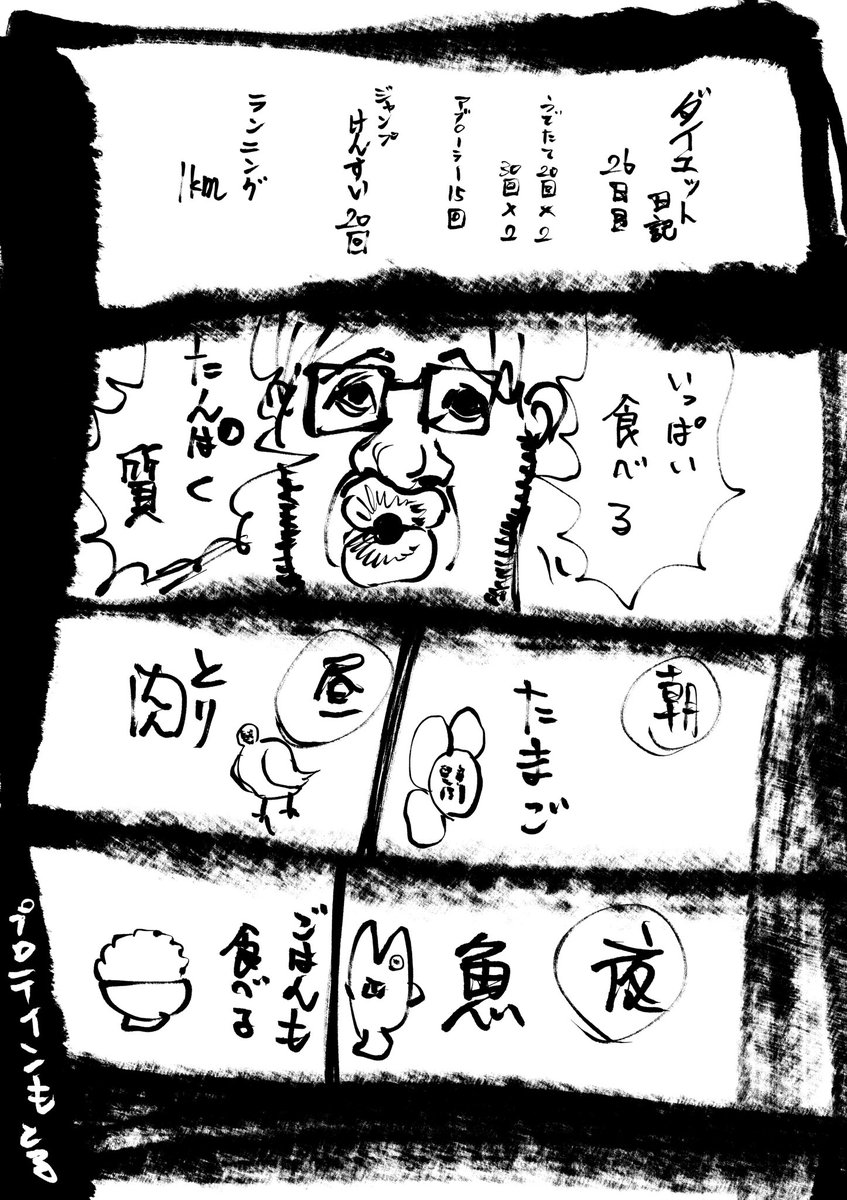 ダイエット
日記
26日目
うでたて20回×2
30回×2
アブローラー15回
ジャンプ
けんすい20回
ランニング
1km
いっぱい
食べる
たんぱく
質
朝
たまご
昼
とり
肉
夜
魚
ごはんも
食べる
プロテインもとる